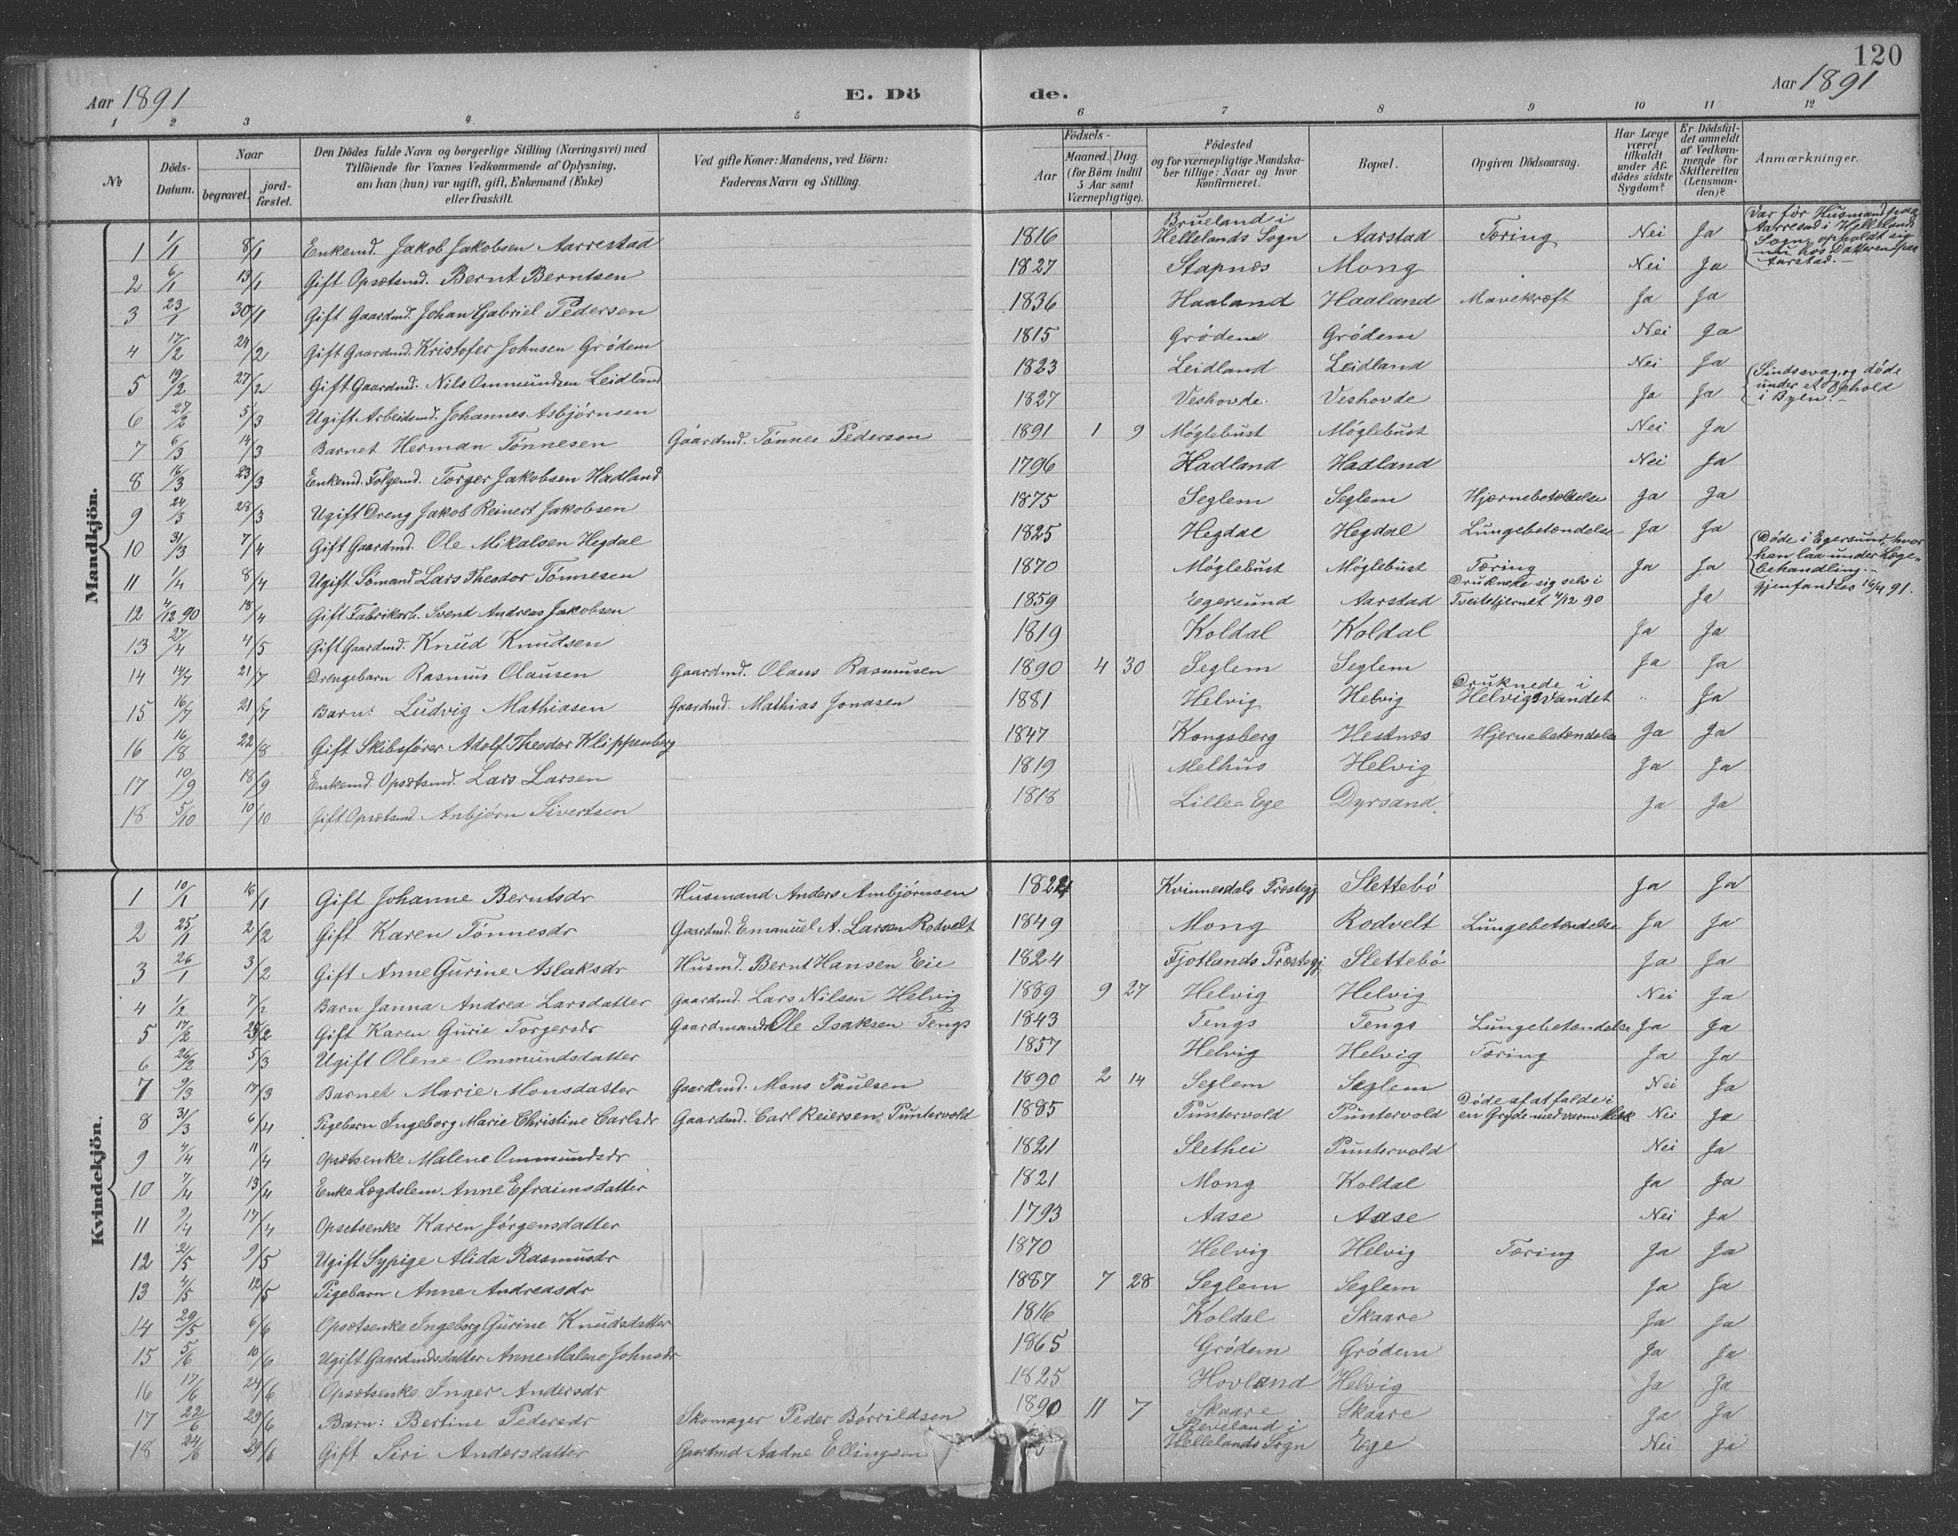 120
Aar 1891
E. Dö
de.
Aar 1891
1 2 3 4. 5 6 7 8 9 10 11 12
No
Döds-Datum.
Naar
begravet.
jord-fæstet.
Den Dödes fulde Navn og borgerlige Stilling (Næringsvei) med
Tilföiende for Voxnes Vedkommende af Oplysning,
om han (hun) var ugift, gift, Enkemand (Enke)
eller fraskilt.
Ved gifte Koner: Mandens, ved Börn:
Faderens Navn og Stilling.
Födsels-
Aar
Maaned. Dag
(for Börn indtil
5 Aar samt
Værnepligtige).
Födested
og for værnepligtige Mandska-
ber tillige: Naar og hvor
konfirmeret.
Bopæl.
Opgiven Dödsaarsag.
Har Læge
været
tilkaldt
under Af-
dödes sidste
Sygdom?
Er Dödsfal-
det anmeldt
af Vedkom-
mende for
Skifteretten
(Lensman-
den)?
Anmærkninger.
Mandkjön.
1 1/1 8/1 Enkemd. Jakob Jakobsen Aarrestad 1816 Brueland i Hellelands Sogn Aarstad Tæring Nei Ja Var før Husmand paa Aarrestad i Helleland Sogn, opholdt sig nu hos Datteren paa Aarstad.
2 6/1 13/1 Gift Opsætsmd. Bernt Berntsen 1827 Stapnæs Mong Nei Ja
3 23/1 30/1 Gift Gaardmd. Johan Gabriel Pedersen 1836 Haaland Haaland Mavekræft Ja Ja
4 17/2 24/2 Gift Gaardmd. Kristofer Johnsen Grødem 1815 Grødem Grødem Nei Ja
5 19/2 27/2 Gift Gaardmd. Nils Ommundsen Leidland 1823 Leidland Leidland Nei Ja
6 27/2 5/3 Ugift Arbeidsmd. Johannes Asbjørnsen 1827 Veshovde Veshovde Ja Ja Sindssvag, og døde under et Ophold i Byen.
7 6/3 14/3 Barnet Herman Tønnesen Gaardmd. Tønnes Pedersen 1891 1 9 Møglebust Møglebust Nei Ja
8 16/3 23/3 Enkemd. Folgemd. Torger Jakobsen Hadland 1796 Hadland Hadland Nei Ja
9 24/3 28/3 Ugift Dreng Jakob Reinert Jakobsen 1875 Seglem Seglem Hjærnebetændelse Ja Ja
10 31/3 7/4 Gift Gaardmd. Ole Mikalsen Hegdal 1825 Hegdal Hegdal Lungebetændelse Ja Ja
11 1/4 8/4 Ugift Sømand Lars Theodor Tønnesen 1870 Møglebust Møglebust Tæring Ja Ja Døde i Egersund, hvor han laa under Læge-behandling.
12 4/12 90 18/4 Gift Fabrikarb. Svend Andreas Jakobsen 1859 Egersund Aarstad Druknede sig selv i Tveitetjernet 4/12 90 Ja Gjenfandtes 16/4 91.
13 27/4 4/5 Gift Gaardmd. Knud Knudsen 1819 Koldal Koldal Ja Ja
14 14/7 21/7 Drengebarn Rasmus Olausen Gaardmd. Olaus Rasmusen 1890 4 30 Seglem Seglem Ja Ja
15 16/7 21/7 Barn: Ludvig Mathiasen Gaardmd. Mathias Jonasen 1881 Helvig Helvig Druknede i Helvigsvandet " Ja
16 16/8 22/8 Gift Skibsfører Adolf Theodor Klippenberg 1847 Kongsberg Hestnæs Hjernebetændelse Ja Ja
17 10/9 18/9 Enkemd. Opsætsmd. Lars Larsen 1819 Melhus Helvig Ja Ja
18 5/10 10/10 Gift Opsætsmd. Anbjørn Sivertsen 1818 Lille-Ege Dyrsand Ja Ja
Kvindekjön.
1 10/1 16/1 Gift Johanne Berntsdr Husmand Anders Ambjørnsen 1824 Kvinnesdals Præstegj Slettebö Ja Ja
2 25/1 2/2 Gift Karen Tönnesdr Gaardmd. Emanuel A. Larsen Rodvelt 1849 Mong Rodvelt Lungebetændelse Ja Ja
3 26/1 3/2 Gift Anne Gurine Aslaksdr Husmd. Bernt Hansen Eie 1824 Fjotlands Præstegj Slettebö Ja Ja
4 1/2 7/2 Barn Janna Andrea Larsdatter Gaardmd. Lars Nilsen Helvig 1889 9 27 Helvig Helvig Nei Ja
5 17/2 25/2 Gift Karen Gurie Torgersdr Gaardmand Ole Isaksen Tengs 1843 Tengs Tengs Lungebetændelse Ja Ja
6 26/2 5/3 Ugift Olene Ommundsdatter 1857 Helvig Helvig Tæring Ja Ja
7 9/3 17/3 Barnet Marie Monsdatter Gaardmd. Mons Paulsen 1890 2 14 Seglem Seglem Nei Ja
8 31/3 6/4 Pigebarn Ingeborg Marie Christine Carlsdr Gaardmd. Carl Reiersen Puntervold 1885 Puntervold Puntervold Døde af at falde i en Gryde med varm Nei Ja
9 4/4 11/4 Opsætsenke Malene Ommundsdr 1821 Slethei Puntervold Nei Ja
10 7/4 13/4 Enke Lægdslem Anne Efraimsdatter 1821 Mong Koldal Ja Ja
11 9/4 17/4 Opsetsenke Karen Jørgensdatter 1793 Aase Aase Nei Ja
12 2/5 9/5 Ugift Sypige Alida Rasmusdr 1870 Helvig Helvig Tæring Ja Ja
13 4/5 12/5 Pigebarn Anne Andreasdr 1887 7 28 Seglem Seglem Ja Ja
14 29/5 6/6 Opsætsenke Ingeborg Gurine Knudsdatter 1816 Koldal Skaare Ja Ja
15 5/6 10/6 Ugift Gaardmdsdatter Anne Malene Johnsdr 1865 Grødem Grødem Ja Ja
16 17/6 24/6 Opsætsenke Inger Andersdr 1825 Hovland Helvig Ja Ja
17 22/6 29/6 Barn: Bertine Pedersdr Skomager Peder Børrildsen 1890 11 7 Skaare Skaare Ja Ja
18 24/6 29/6 Gift Siri Andersdatter Gaardmd Aadne Ellingsen Sleveland i Hellelands Sogn Ege Nei Ja